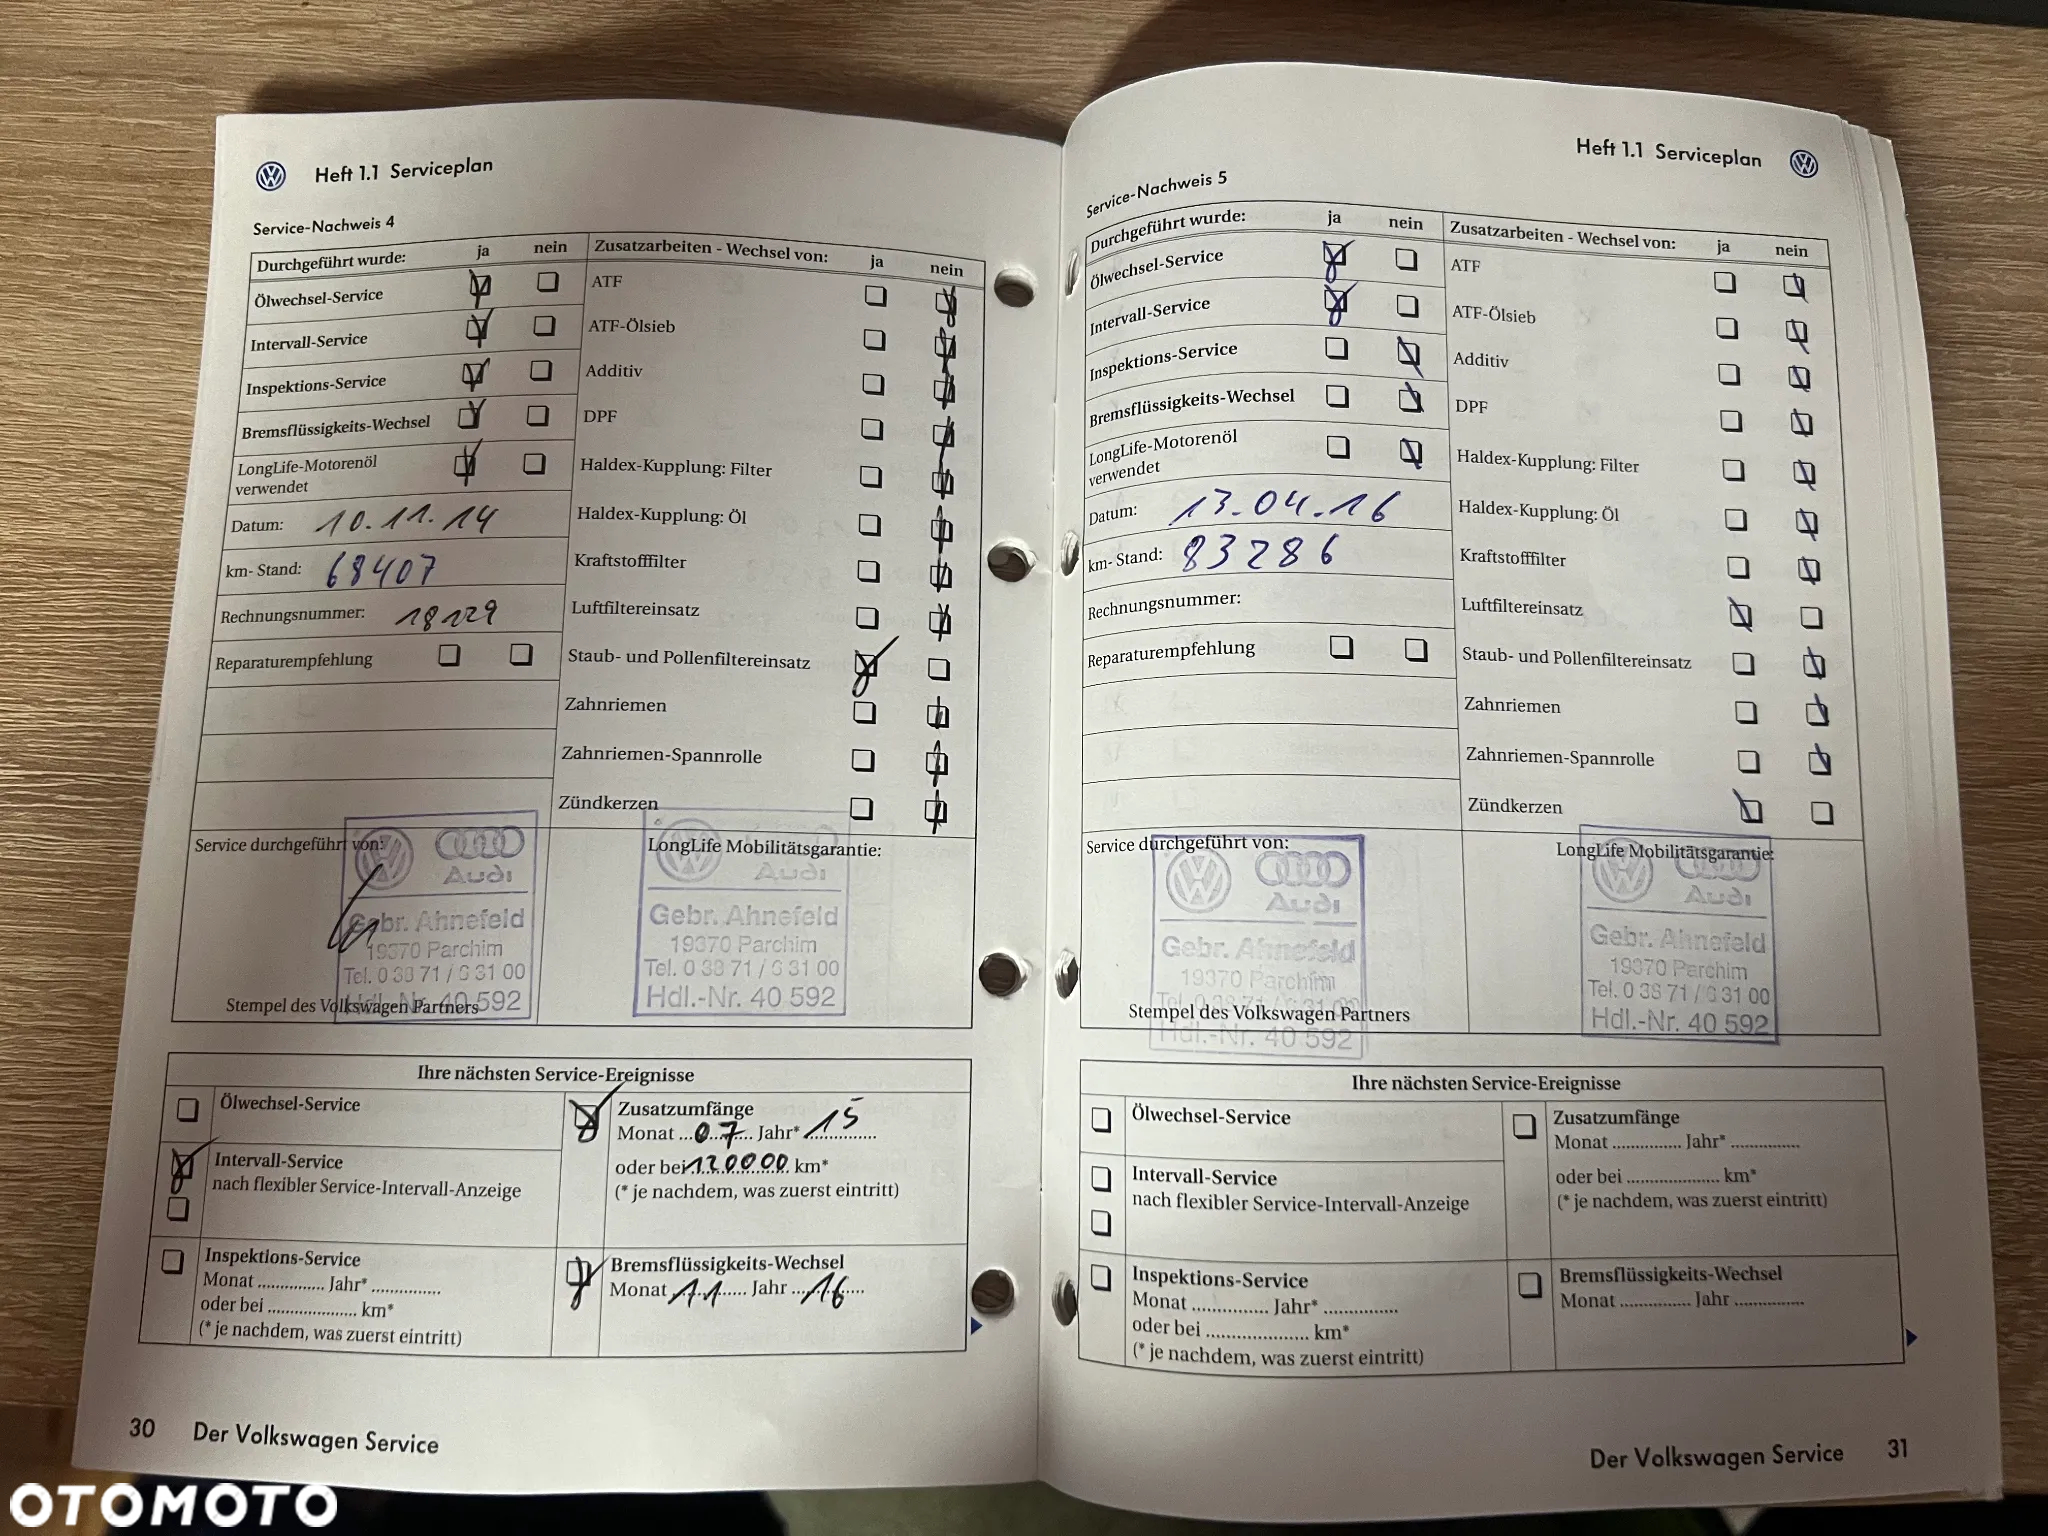 Heft 1.1 Serviceplan
Service-Nachweis 4
Durchgeführt wurde: ja nein
Ölwechsel-Service
Intervall-Service
Inspektions-Service
Bremsflüssigkeits-Wechsel
LongLife-Motorenöl
verwendet
Datum: 10.11.14
km- Stand: 68407
Rechnungsnummer: 18129
Reparaturempfehlung
Zusatzarbeiten - Wechsel von: ja nein
ATF
ATF-Ölsieb
Additiv
DPF
Haldex-Kupplung: Filter
Haldex-Kupplung: Öl
Kraftstofffilter
Luftfiltereinsatz
Staub- und Pollenfiltereinsatz
Zahnriemen
Zahnriemen-Spannrolle
Zündkerzen
Service durchgeführt von:
Audi
Gebr. Ahnefeld
19370 Parchim
Tel. 0 38 71 / 6 31 00
Hdl.-Nr. 40 592
Stempel des Volkswagen Partners
LongLife Mobilitätsgarantie:
Audi
Gebr. Ahnefeld
19370 Parchim
Tel. 0 38 71 / 6 31 00
Hdl.-Nr. 40 592
Ihre nächsten Service-Ereignisse
Ölwechsel-Service
Intervall-Service
nach flexibler Service-Intervall-Anzeige
Inspektions-Service
Monat ............... Jahr* ...............
oder bei .................... km*
(* je nachdem, was zuerst eintritt)
Zusatzumfänge
Monat 07 Jahr* 15
oder bei 120000 km*
(* je nachdem, was zuerst eintritt)
Bremsflüssigkeits-Wechsel
Monat 11 Jahr 16
30 Der Volkswagen Service
Heft 1.1 Serviceplan
Service-Nachweis 5
Durchgeführt wurde: ja nein
Ölwechsel-Service
Intervall-Service
Inspektions-Service
Bremsflüssigkeits-Wechsel
LongLife-Motorenöl
verwendet
Datum: 13.04.16
km- Stand: 83286
Rechnungsnummer:
Reparaturempfehlung
Zusatzarbeiten - Wechsel von: ja nein
ATF
ATF-Ölsieb
Additiv
DPF
Haldex-Kupplung: Filter
Haldex-Kupplung: Öl
Kraftstofffilter
Luftfiltereinsatz
Staub- und Pollenfiltereinsatz
Zahnriemen
Zahnriemen-Spannrolle
Zündkerzen
Service durchgeführt von:
Audi
Gebr. Ahnefeld
19370 Parchim
Tel. 0 38 71 / 6 31 00
Hdl.-Nr. 40 592
Stempel des Volkswagen Partners
LongLife Mobilitätsgarantie:
Audi
Gebr. Ahnefeld
19370 Parchim
Tel. 0 38 71 / 6 31 00
Hdl.-Nr. 40 592
Ihre nächsten Service-Ereignisse
Ölwechsel-Service
Intervall-Service
nach flexibler Service-Intervall-Anzeige
Inspektions-Service
Monat ............... Jahr* ...............
oder bei .................... km*
(* je nachdem, was zuerst eintritt)
Zusatzumfänge
Monat ............... Jahr* ...............
oder bei .................... km*
(* je nachdem, was zuerst eintritt)
Bremsflüssigkeits-Wechsel
Monat ............... Jahr ...............
Der Volkswagen Service 31
OTOMOTO